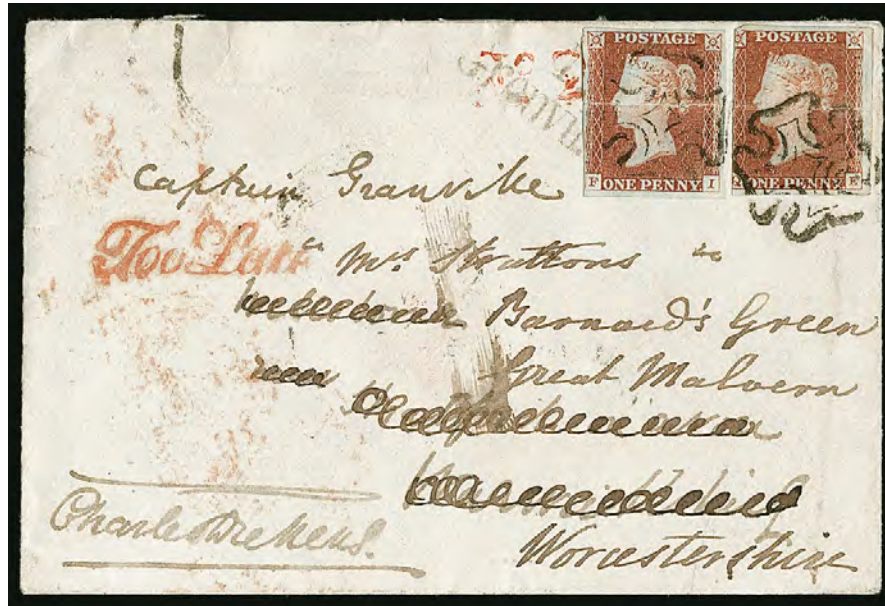 POSTAGE POSTAGE
F ONE PENNY I ONE PENNY E
Captain Granville
Too Late
Mrs Strattons
Barnard's Green
Great Malvern
Worcestershire
Charles Dickens.